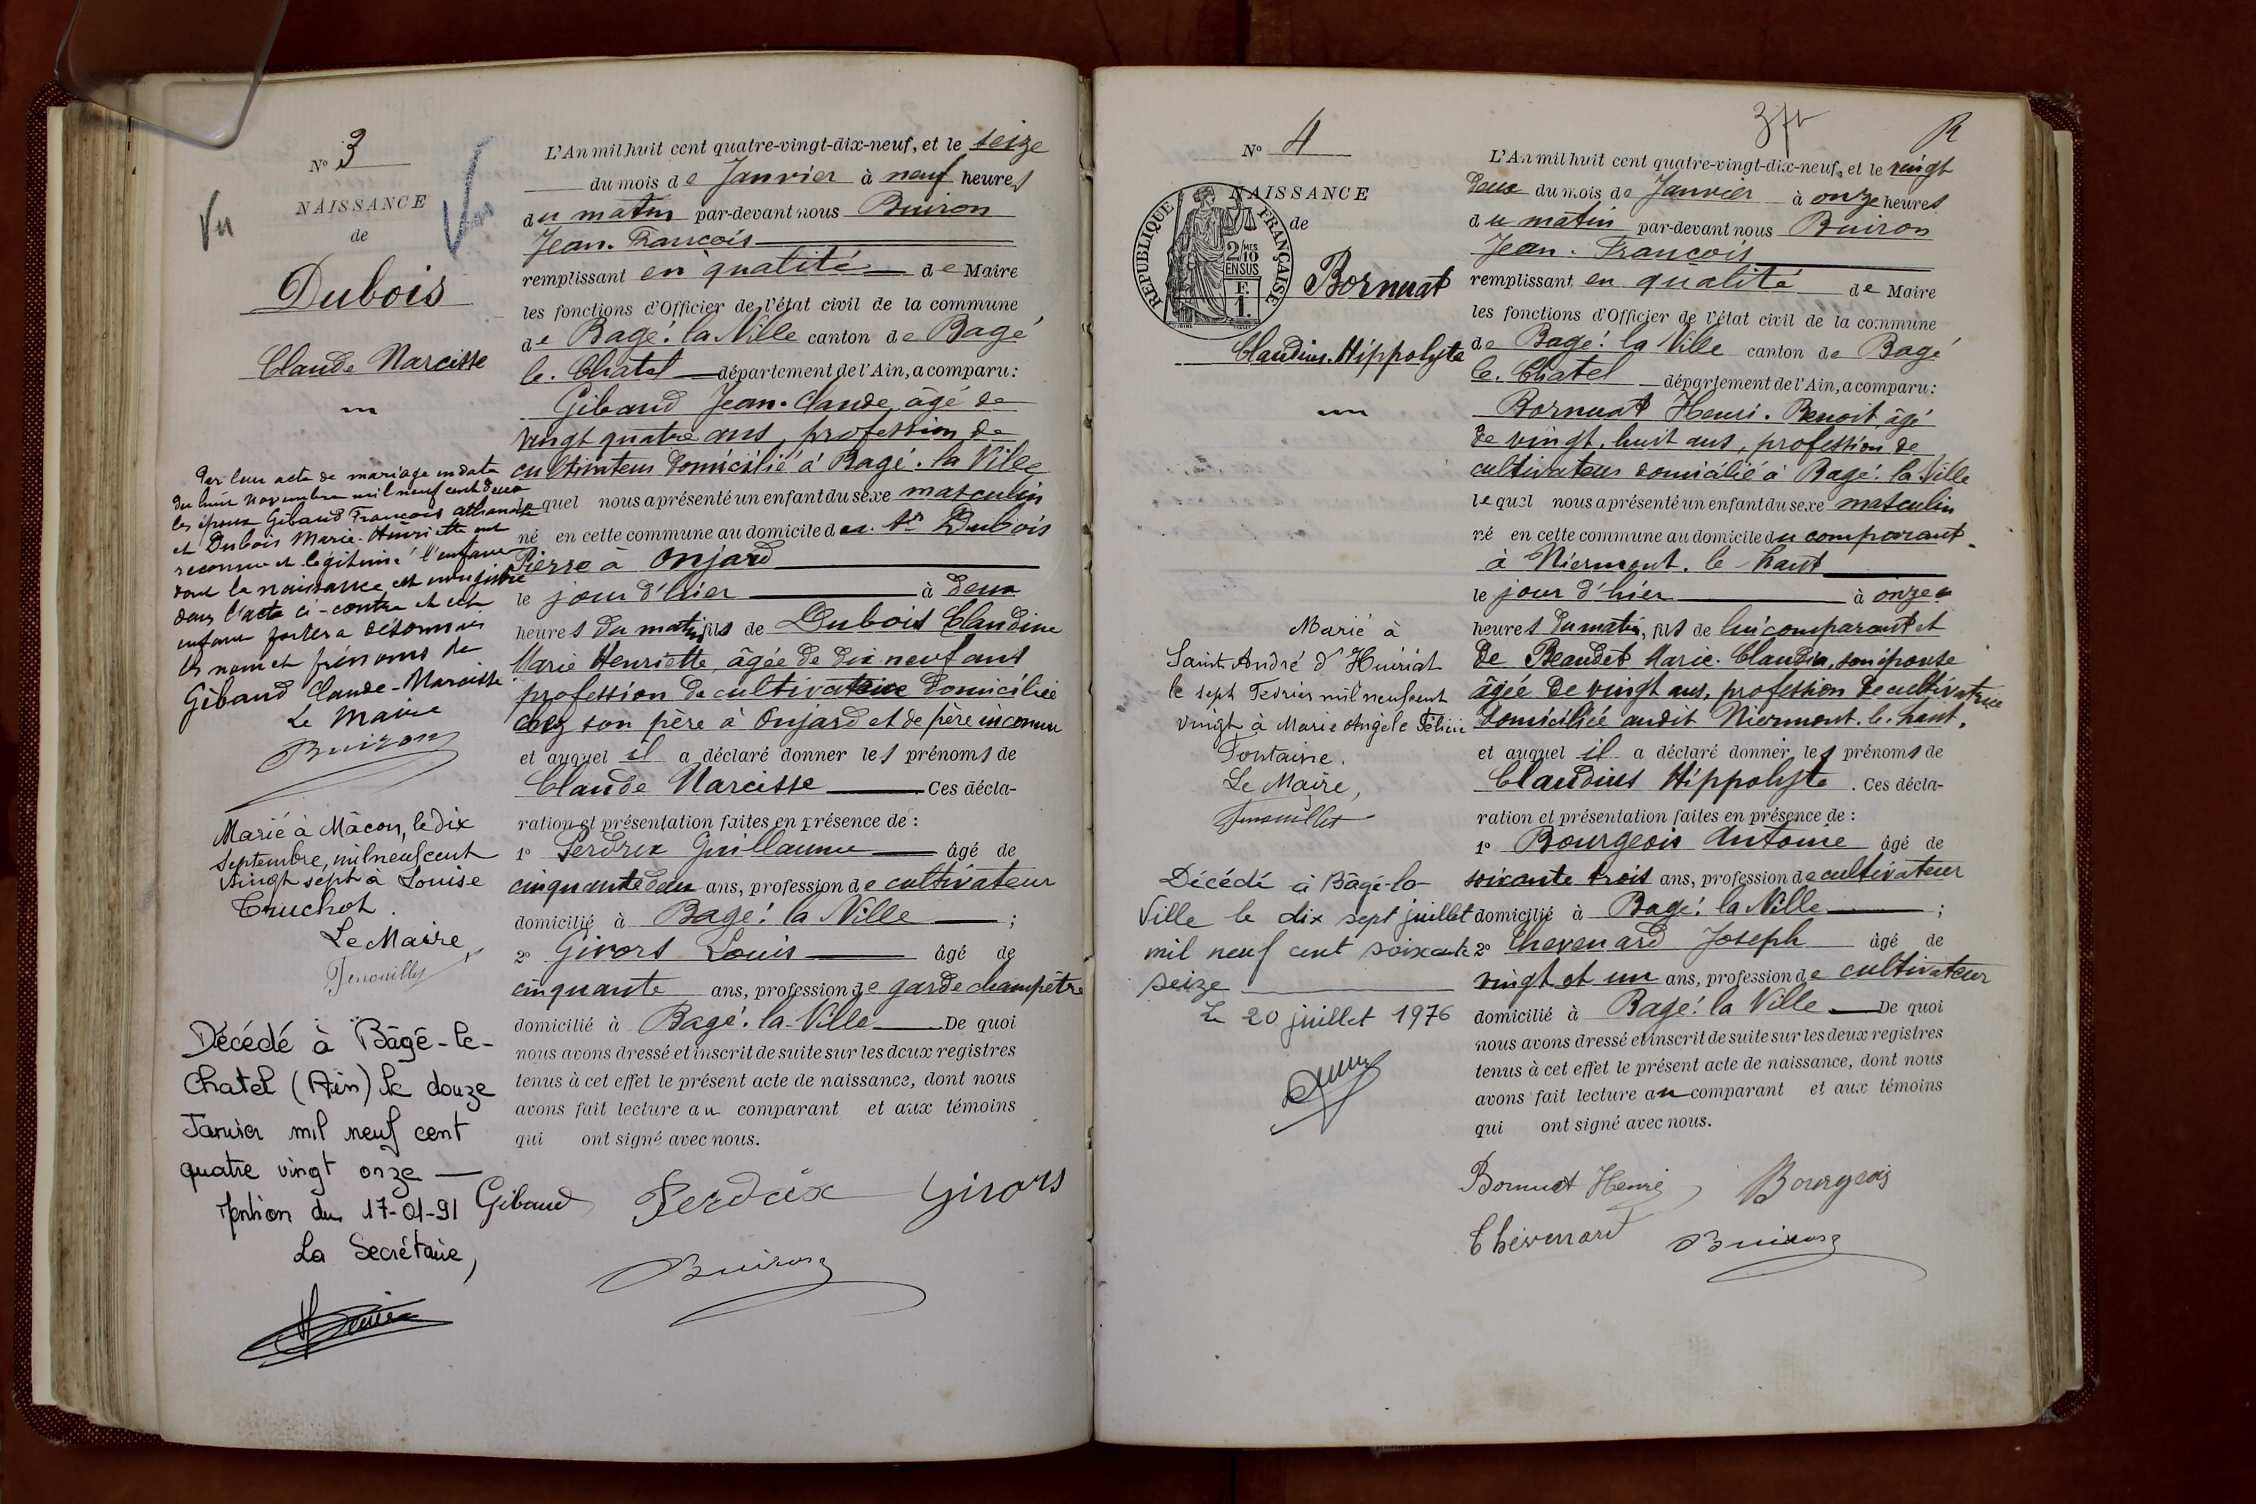 Nº 3
NAISSANCE
de
Vu
Dubois
Claude Narcisse
Par leur acte de mariage en date
du huit novembre mil neuf cent deux
les époux Gibaud François
et Dubois Marie-Henriette ont
reconnu et légitimé l'enfant
dont la naissance est enregistrée
dans l'acte ci-contre et cet
enfant portera désormais
les nom et prénoms de
Gibaud Claude-Narcisse
Le Maire
Buiron
Marié à Mâcon, le dix
septembre, mil neuf cent
vingt sept à Louise
Truchot.
Le Maire,
Décédé à Bâgé-le-
Chatel (Ain) le douze
Janvier mil neuf cent
quatre vingt onze —
Mention du 17-01-91
La Secrétaire,
L'An mil huit cent quatre-vingt-dix-neuf, et le seize
du mois de Janvier à neuf heures
du matin par-devant nous Buiron
Jean-François
remplissant en qualité de Maire
les fonctions d'Officier de l'état civil de la commune
de Bagé-la Ville canton de Bagé
le-Chatel département de l'Ain, a comparu:
Gibaud Jean-Claude, âgé de
vingt quatre ans, profession de
cultivateur domicilié à Bagé-la Ville
lequel nous a présenté un enfant du sexe masculin
né en cette commune au domicile du Sr Dubois
Pierre à Onjard
le jour d'hier à deux
heures du matin, fils de Dubois Claudine
Marie Henriette, âgée de dix neuf ans
profession de cultivatrice domiciliée
chez son père à Onjard et de père inconnu
et auquel il a déclaré donner les prénoms de
Claude Narcisse Ces décla-
ration et présentation faites en présence de :
1º Perdrix Guillaume âgé de
cinquante deux ans, profession de cultivateur
domicilié à Bagé-la Ville ;
2º Givors Louis âgé de
cinquante ans, profession de garde champêtre
domicilié à Bagé-la-Ville De quoi
nous avons dressé et inscrit de suite sur les deux registres
tenus à cet effet le présent acte de naissance, dont nous
avons fait lecture au comparant et aux témoins
qui ont signé avec nous.
Gibaud Perdrix Givors
Buiron
Nº 4
NAISSANCE
de
RÉPUBLIQUE FRANÇAISE
2/10
EN SUS
F.
1.
Bornuat
Claudius-Hippolyte
Marié à
Saint-André d'Huiriat
le sept Février mil neuf cent
vingt à Marie Angèle Félicie
Fontaine.
Le Maire,
Décédé à Bâgé-la-
Ville le dix sept juillet
mil neuf cent soixante
seize
Le 20 juillet 1976
L'An mil huit cent quatre-vingt-dix-neuf, et le vingt
deux du mois de Janvier à onze heures
du matin par-devant nous Buiron
Jean-François
remplissant en qualité de Maire
les fonctions d'Officier de l'état civil de la commune
de Bagé-la Ville canton de Bagé
le-Chatel département de l'Ain, a comparu:
Bornuat Henri-Benoit, âgé
de vingt-huit ans, profession de
cultivateur domicilié à Bagé-la Ville
lequel nous a présenté un enfant du sexe masculin
né en cette commune au domicile du comparant
à Niermont-le-haut
le jour d'hier à onze
heures du matin, fils de lui comparant et
de Beaudet Marie-Claudia, son épouse
âgée de vingt ans, profession de cultivatrice
domiciliée audit Niermont-le-haut,
et auquel il a déclaré donner les prénoms de
Claudius Hippolyte. Ces décla-
ration et présentation faites en présence de :
1º Bourgeois Antoine âgé de
soixante trois ans, profession de cultivateur
domicilié à Bagé-la Ville ;
2º Thevenard Joseph âgé de
vingt et un ans, profession de cultivateur
domicilié à Bagé-la Ville De quoi
nous avons dressé et inscrit de suite sur les deux registres
tenus à cet effet le présent acte de naissance, dont nous
avons fait lecture au comparant et aux témoins
qui ont signé avec nous.
Bornuat Henri Bourgeois
Thévenard Buiron